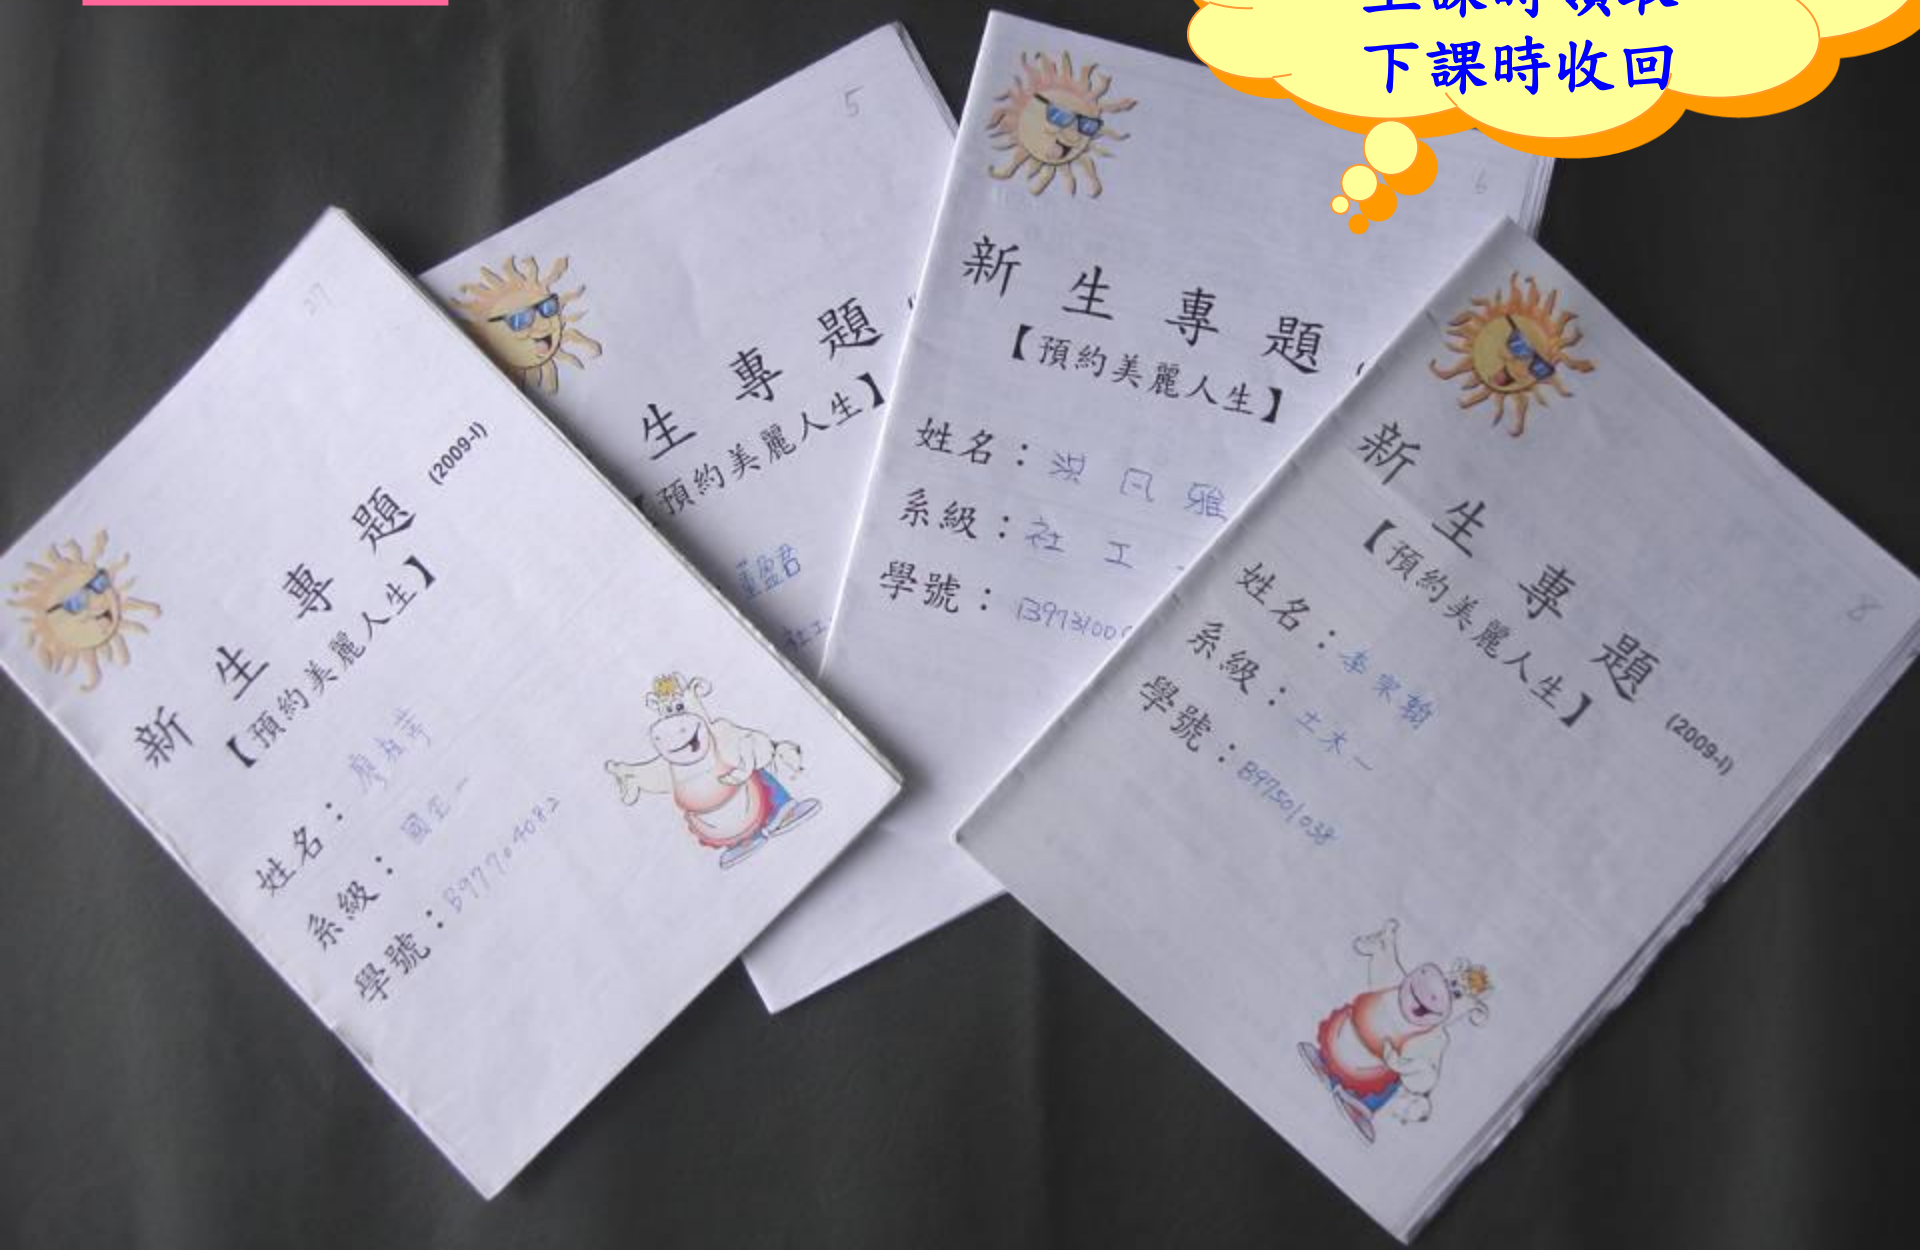 上課時領取
下課時收回
27
新生專題 (2009-I)
【預約美麗人生】
姓名：廖
系級：國企一
學號：B97704082
5
生專題
【預約美麗人生】
董盈君
社工
6
新生專題
【預約美麗人生】
姓名：洪 雅
系級：社工
學號：B973100
8
新生專題 (2009-I)
【預約美麗人生】
姓名：李宗翰
系級：土木一
學號：B97501038